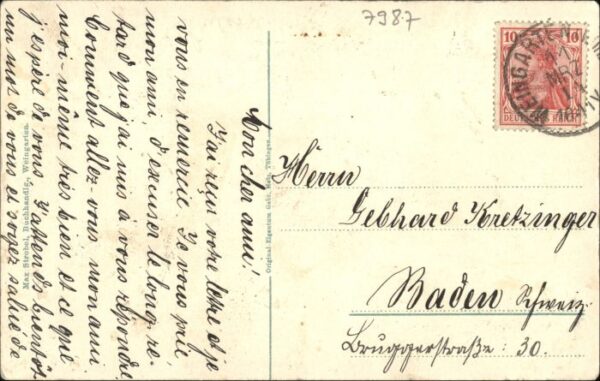 7987
Mon cher ami!
J'ai reçu votre lettre et je
vous en remercie. Je vous prie
mon ami, d'excuser le long re-
tard que j'ai mis à vous répondre.
Comment allez-vous mon ami.
moi-même très bien et ce que
j'espère de vous. J'attends bientôt
un mot de vous et vous salue de
Max Strobel, Buchhandlg., Weingarten.
Original-Eigentum Gebr. Metz, Tübingen.
10 10
DEUTSCHES REICH
WEINGARTEN
MRZ
11
Herrn
Gebhard Kretzinger
Baden Schweiz
Bruggerstraße: 30.